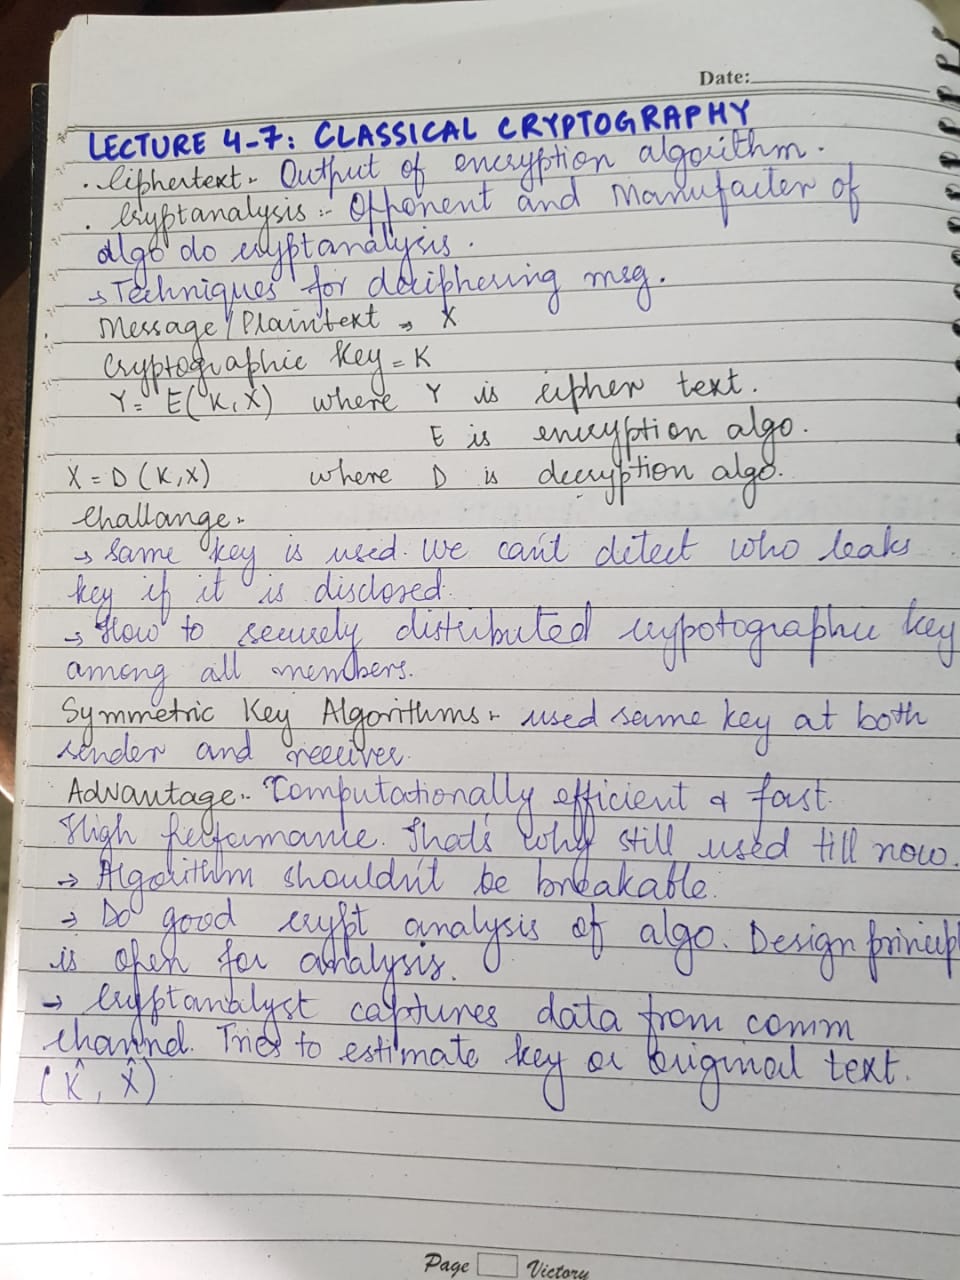 Date:
LECTURE 4-7: CLASSICAL CRYPTOGRAPHY
. Ciphertext :- Output of encryption algorithm.
. Cryptanalysis :- Opponent and Manufacter of
algo do cryptanalysis.
→ Techniques for deciphering msg.
Message/Plaintext → X
Cryptographic Key = K
Y = E(K,X) where Y is cipher text.
E is encryption algo.
X = D(K,X) where D is decryption algo.
Challange :-
→ Same key is used. We can't detect who leaks
key if it is disclosed.
→ How to securely distributed crypotographic key
among all members.
Symmetric Key Algorithms :- used same key at both
sender and receiver.
Advantage :- Computationally efficient & fast.
High performance. That's why still used till now.
→ Algorithm shouldn't be breakable.
→ Do good crypt analysis of algo. Design princip
is open for analysis.
→ Cryptanalyst captures data from comm
channel. Tries to estimate key or original text.
(K̂, X̂)
Page Victory